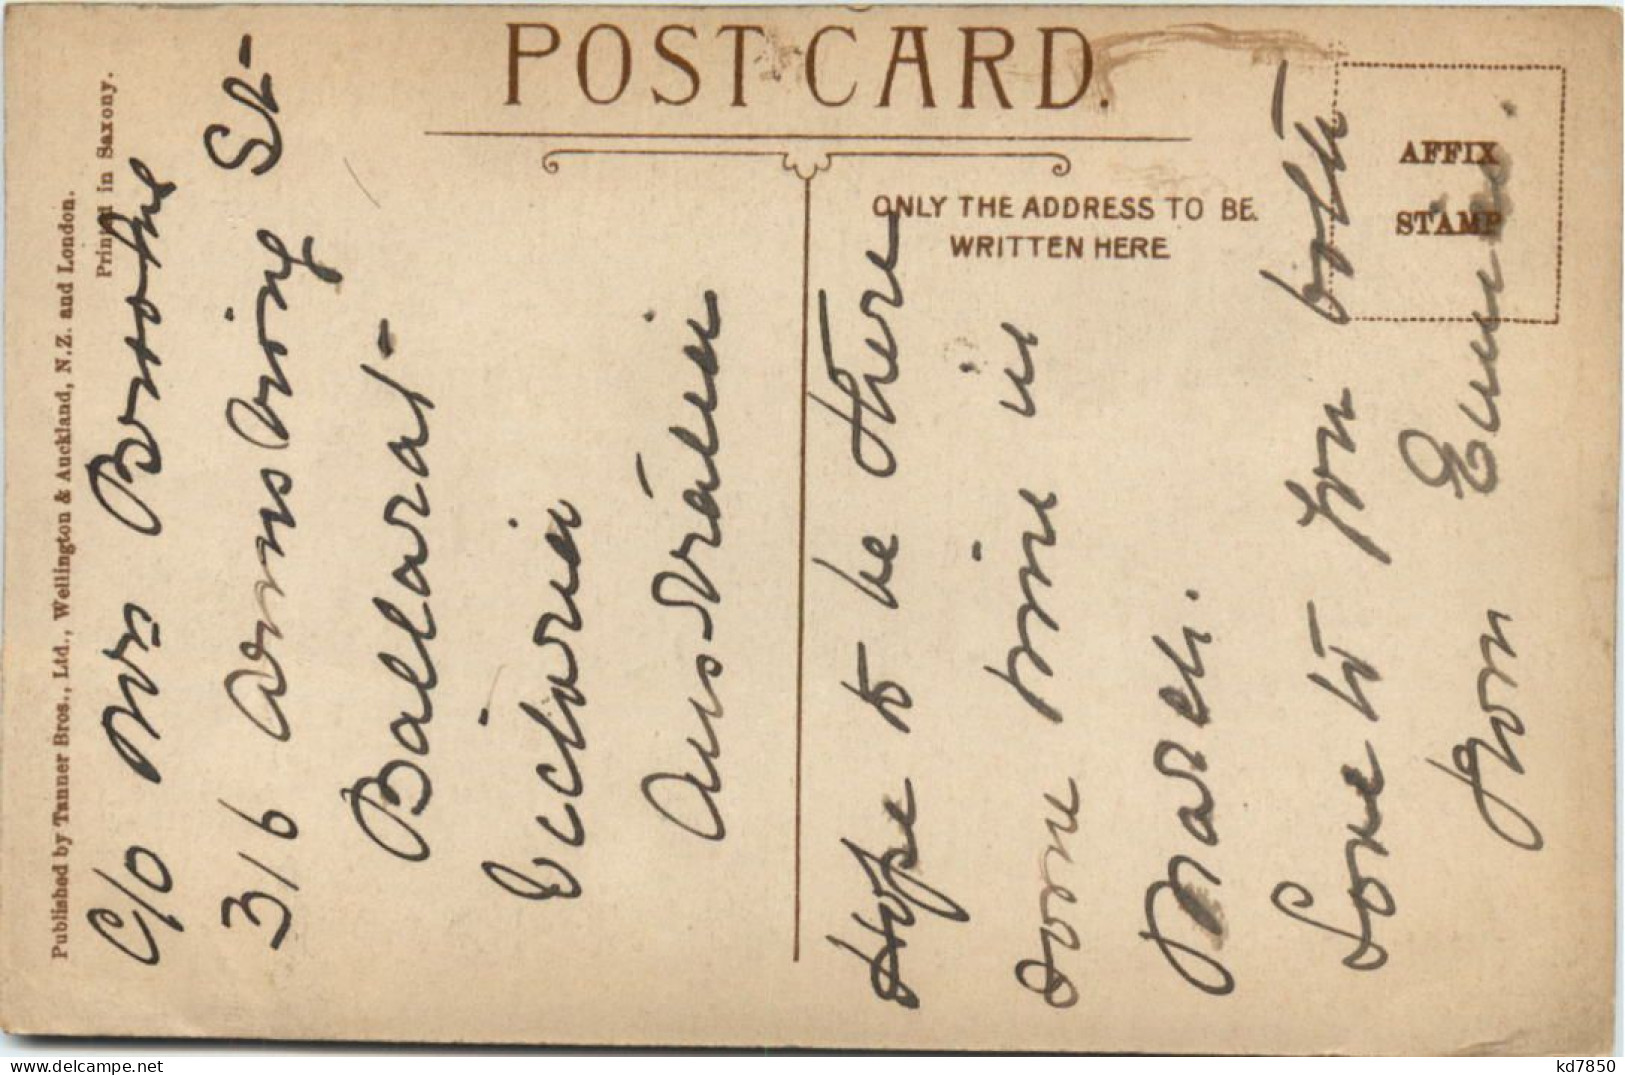 POST CARD.
ONLY THE ADDRESS TO BE
WRITTEN HERE
AFFIX
STAMP
Published by Tanner Bros., Ltd., Wellington & Auckland, N.Z. and London.
Printed in Saxony.
C/o Mrs
316 Armstrong St
Ballarat
Victoria
Australia
Hope to be there
some time in
March.
Love to you both
from
kd7850